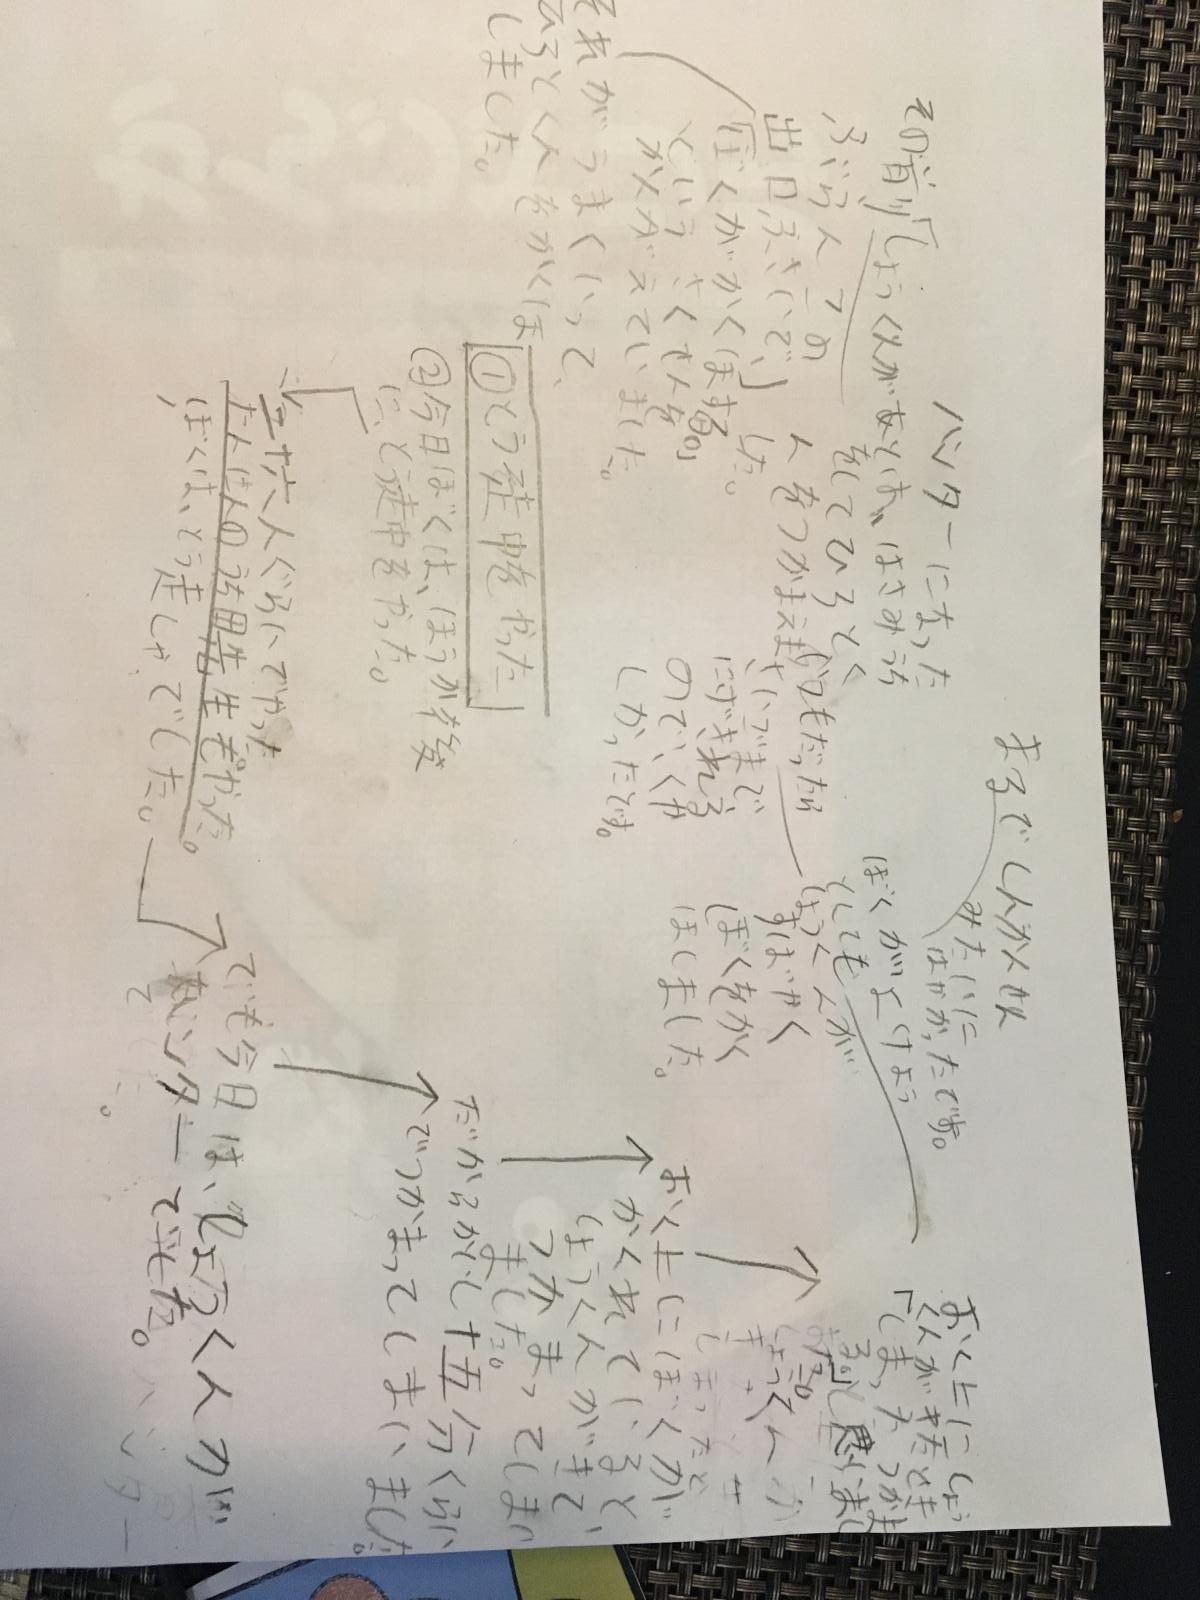 ①とう走中をやった
②今日ぼくは、ほうか後
に、とう走中をやった。
十六人ぐらいでやった
たんにんの先生もやった。
ぼくは、とう走しゃでした。
でも今日は、しょうくんが
ハンターでした。
だからかいし十五分くらい
でつかまってしまいました。
おく上にぼくが
かくれていると、
しょうくんがきて
つかまってしまい
ました。
おく上にしょう
くんがきたとき
「しまったつかま
る。」と思いまし
た。
ぼくがよけよう
としても
しょうくんが
すばやく
ぼくをかく
ほしました。
まるでしんかんせん
みたいに
はやかったです。
いつもだったら
さいごまで
にげきれる
ので、くや
しかったです。
ハンターになった
あとは、はさみうち
をしてひろとく
んをつかまえま
した。
その前に「しょうくんが
ぶらんこの
出口ふさいで、
ぼくがかくほする。」
というさくせんを
かんがえていました。
それがうまくいって、
ひろとくんをかくほ
しました。